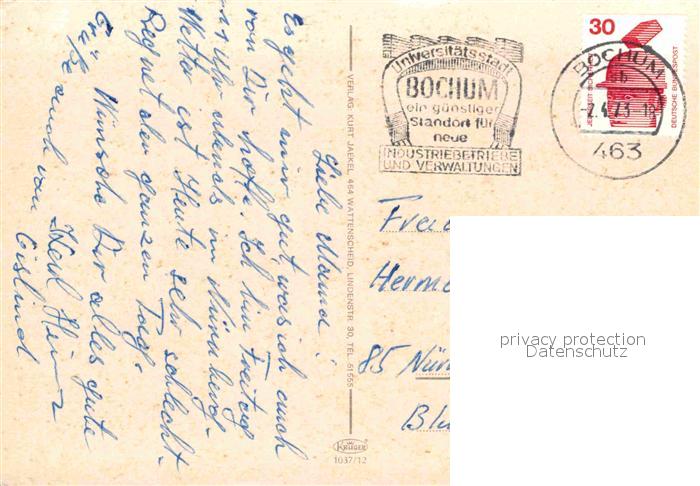 Liebe Mama!
Es geht mir gut, was ich auch
von Dir hoffe. Ich bin Freitag
11 Uhr abends in Nürnberg.
Wetter ist Heute sehr schlecht.
Regnet den ganzen Tag.
Wünsche Dir alles gute
Grüße auch von Karl Heinz
Gislind
VERLAG: KURT JAEKEL, 464 WATTENSCHEID, LINDENSTR 30, TEL. 51555
KRÜGER
1037/12
Universitätsstadt
BOCHUM
ein günstiger
Standort für
neue
INDUSTRIEBETRIEBE
UND VERWALTUNGEN
BOCHUM
b
463
30
DEUTSCHE BUNDESPOST
Herme
85 Nürn
Blu
privacy protection
Datenschutz